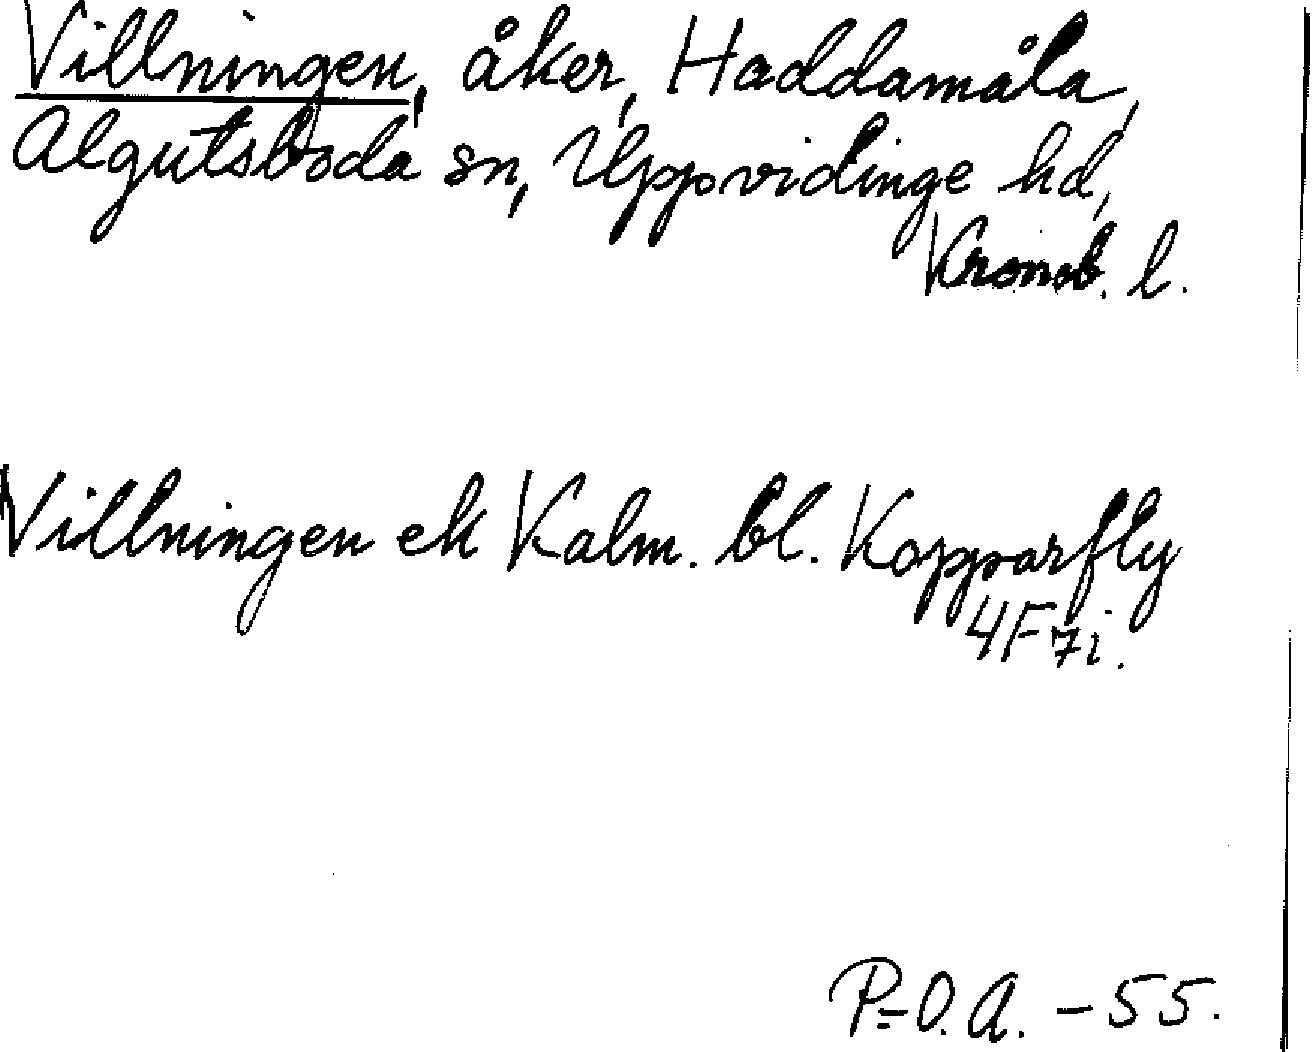 Villningen, åker, Haddamåla,
Algutsboda sn, Uppvidinge hd,
Kronob. l.
Villningen ek Kalm. bl. Kopparfly
4F7i.
P=O.A. - 55.